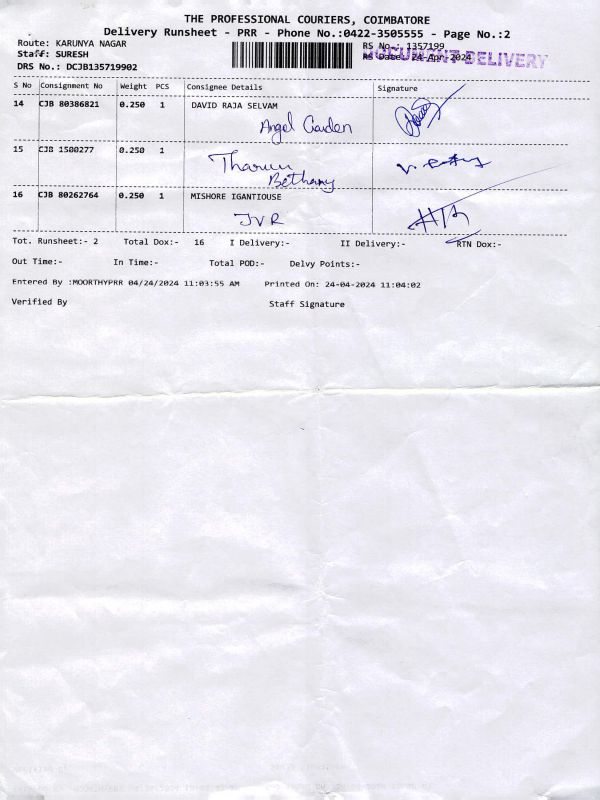 THE PROFESSIONAL COURIERS, COIMBATORE
Delivery Runsheet - PRR - Phone No.:0422-3505555 - Page No.:2
Route: KARUNYA NAGAR
RS No.: 1357199
Staff: SURESH
RS Date: 24-Apr-2024
DOCUMENT DELIVERY
DRS No.: DCJB135719902
S No Consignment No Weight PCS Consignee Details Signature
14 CJB 80386821 0.250 1 DAVID RAJA SELVAM
Angel Garden
15 CJB 1500277 0.250 1 Tharun
Bethany
16 CJB 80262764 0.250 1 MISHORE IGANTIOUSE
JVR
Tot. Runsheet:- 2 Total Dox:- 16 I Delivery:- II Delivery:- RTN Dox:-
Out Time:- In Time:- Total POD:- Delvy Points:-
Entered By :MOORTHYPRR 04/24/2024 11:03:55 AM Printed On: 24-04-2024 11:04:02
Verified By Staff Signature